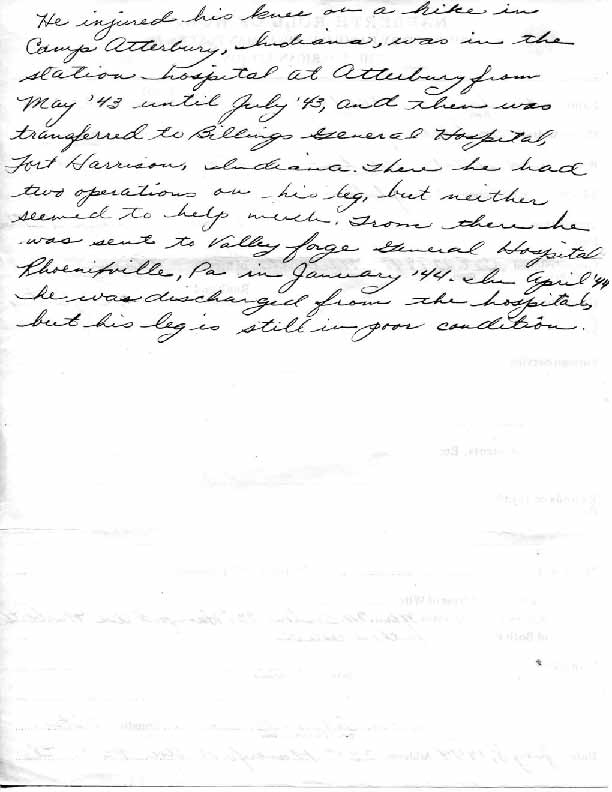 He injured his knee on a hike in
Camp Atterbury, Indiana, was in the
station hospital at Atterbury from
May '43 until July '43, and then was
transferred to Billings General Hospital,
Fort Harrison, Indiana. There he had
two operations on his leg, but neither
seemed to help much. From there he
was sent to Valley forge General Hospital
Phoenifville, Pa in January '44. In April '44
he was discharged from the hospital,
but his leg is still in poor condition.